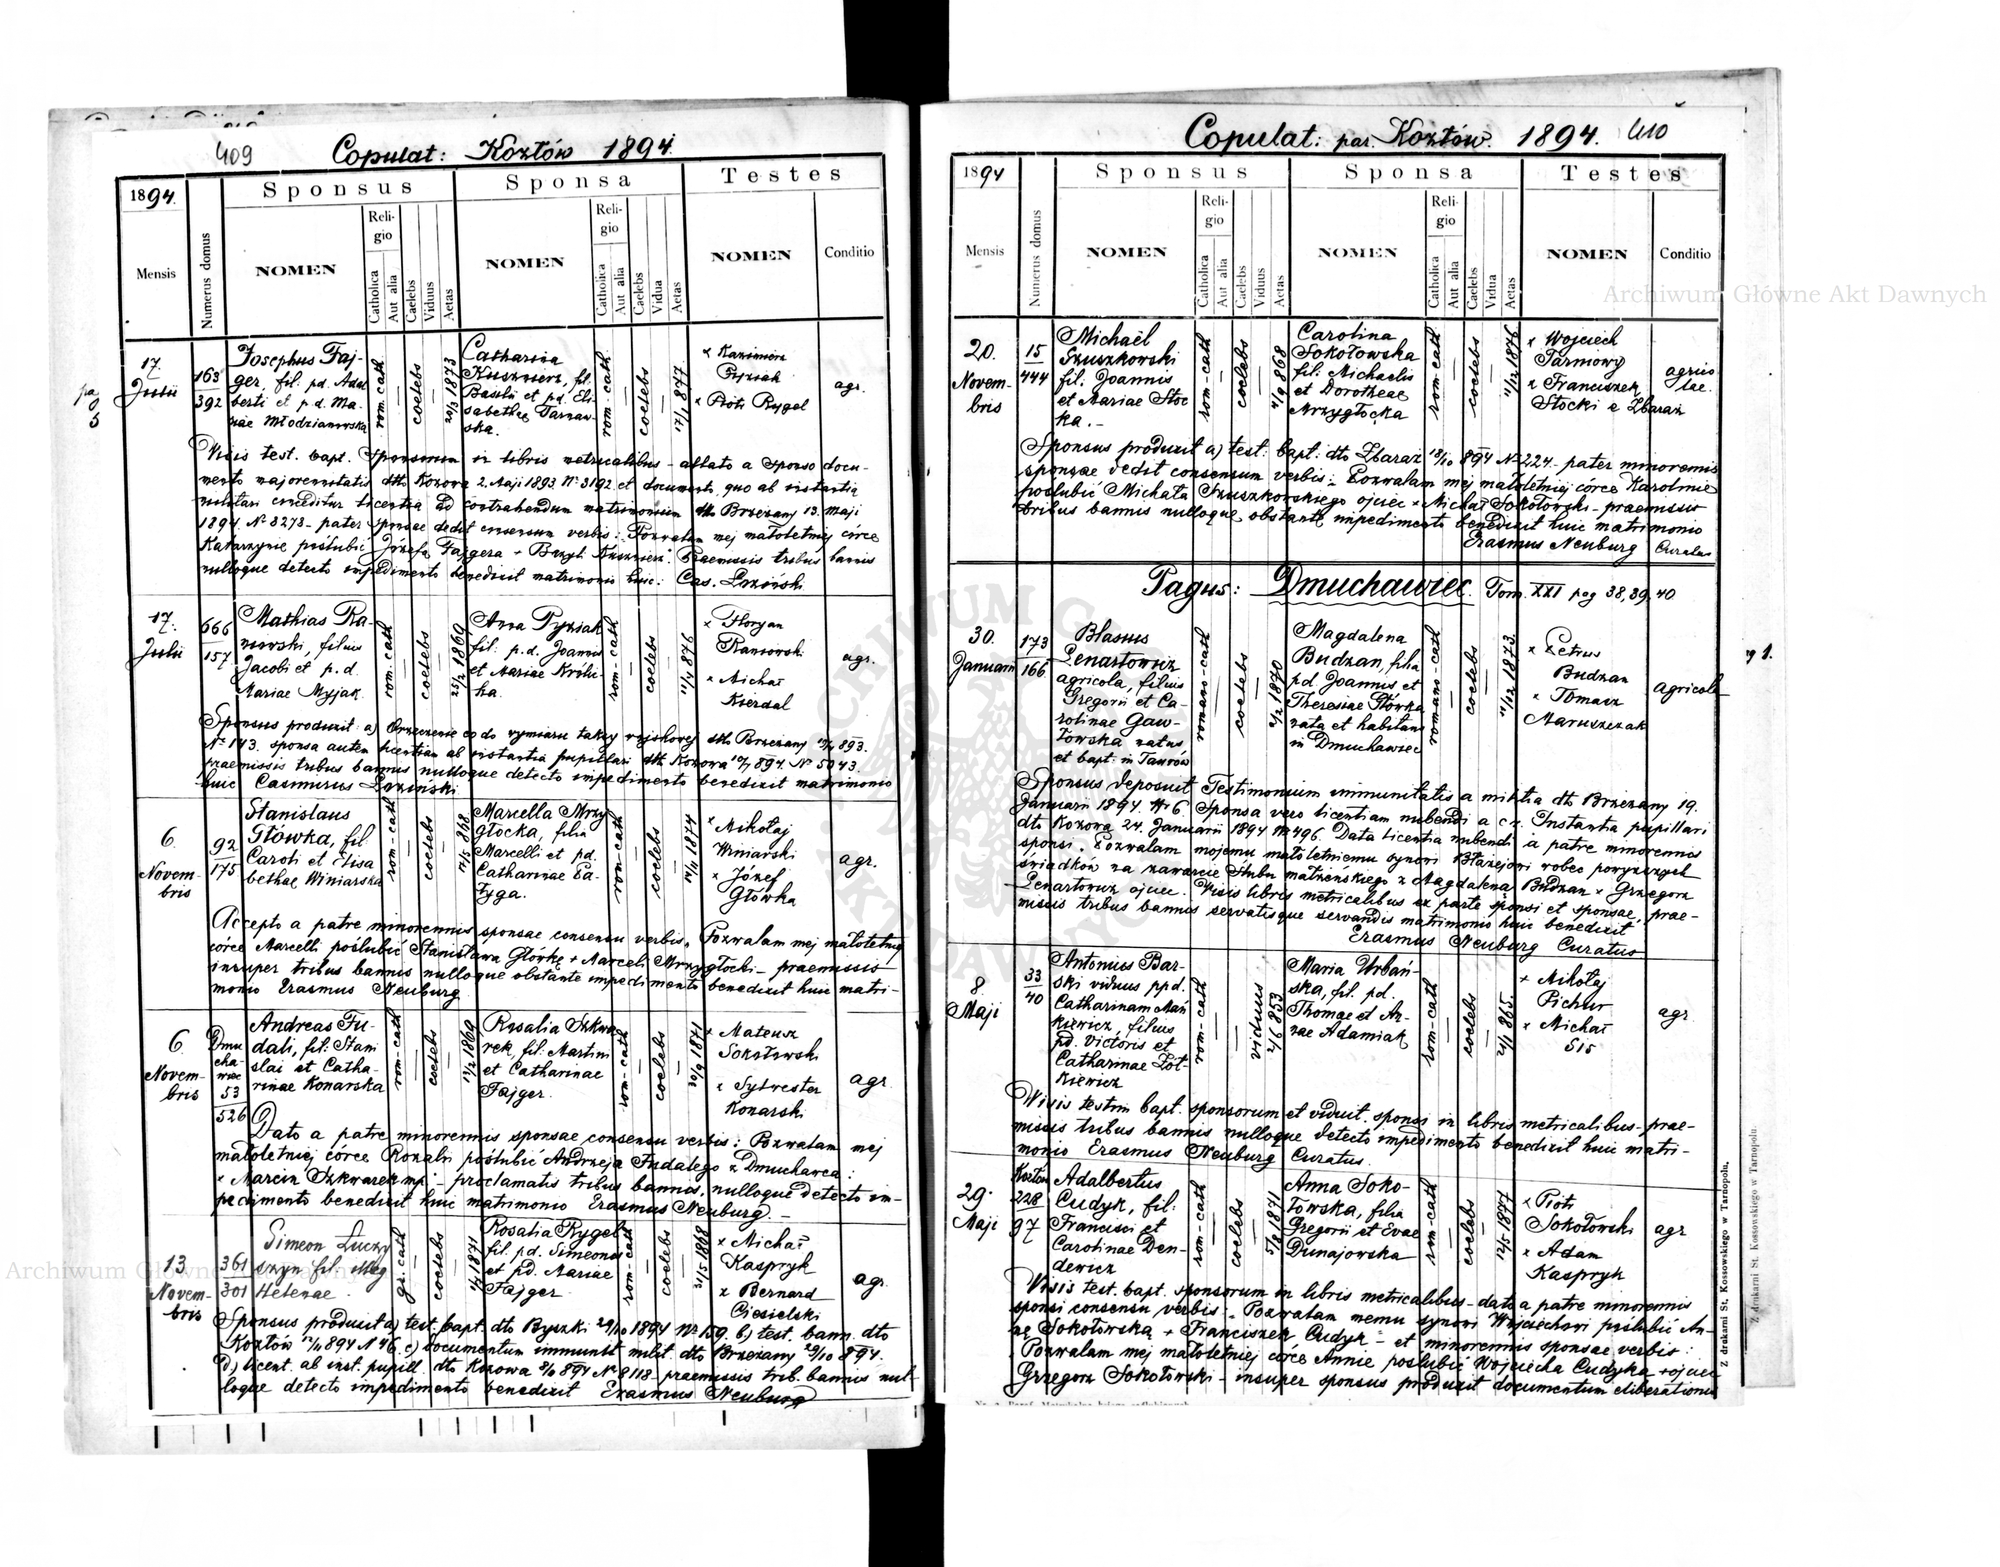 409
Copulat: Kozłów 1894.
1894.
Mensis
Numerus domus
Sponsus
NOMEN
Religio
Catholica
Aut alia
Caelebs
Viduus
Aetas
Sponsa
NOMEN
Religio
Catholica
Aut alia
Caelebs
Vidua
Aetas
Testes
NOMEN
Conditio
pag
17.
Julii
163
392
Josephus Faj-
ger, fil. pd. Adal
berti et p.d. Ma-
riae Młodzianowska
rom-cath
coelebs
20/3 1873
Catharina
Kusznierz, fil.
Basilii et pd. Eli-
sabethae Tarnaw-
ska.
rom-cath
coelebs
17/1 877
× Kazimierz
Pyziak
× Piotr Rygel
agr.
Visis test. bapt. sponsorum in libris metricalibus - allato a sponso docu-
mento majorennitatis dtto Kozowa 2. Maji 1893. Nº 3192 et documento, quo ab instantia
militari conceditur licentia ad contrahendum matrimonium dtto Brzeżany 13. Maji
1894. Nº 3273 - pater sponsae dedit consensum verbis: Pozwalam mej małoletniej córce
Katarzynie poślubić Józefa Fajgera + Bazyl Kusznierz. Praemissis tribus bannis
nulloque detecto impedimento benedixit matrimonio huic: Cas.
17.
Julii
666
157
Mathias Ra-
nowski, filius
Jacobi et p.d.
Mariae Myjak.
rom-cath
coelebs
25/2 1869
Anna Pyziak
fil. p.d. Joannis
et Mariae Króli-
ka.
rom-cath
coelebs
11/7 876
× Floryan
Ranowski
× Michał
Kierdal
agr.
Sponsus produxit a) Orzeczenie co do wymiaru taksy wojskowej dtto Brzeżany 893.
Nº 143. sponsa autem licentiam ab instantia pupillari dtto Kozowa 10/7 894. Nº 5043.
praemissis tribus bannis nulloque detecto impedimento benedixit matrimonio
huic Casimirus
6.
Novem-
bris
92
175
Stanislaus
Główka, fil.
Caroli et Elisa
bethae Winiarska
rom-cath
coelebs
14/5 868
Marcella Mrzy
głocka, filia
Marcelli et pd.
Catharinae Ła-
tyga.
rom-cath
coelebs
14/11 1874
× Mikołaj
Winiarski
× Józef
Główka
agr.
Accepto a patre minorennis sponsae consensu verbis: Pozwalam mej małoletniej
córce Marcelli poślubić Stanisława Główkę + Marceli Mrzygłocki - praemissis
insuper tribus bannis nulloque obstante impedimento benedixit huic matri-
monio Erasmus Neuburg
6.
Novem-
bris
Dmu
cha-
wiec
53
526
Andreas Fu-
dali, fil. Stani
slai et Catha-
rinae Konarska
rom-cath
coelebs
17/2 1869
Rosalia Szkwa-
rek, fil. Martini
et Catharinae
Fajger.
rom-cath
coelebs
30/9 1871
× Mateusz
Sokołowski
× Sylwester
Konarski
agr.
Dato a patre minorennis sponsae consensu verbis: Pozwalam mej
małoletniej córce Rozalii poślubić Andrzeja Fudalego z Dmuchawca:
× Marcin Szkwarek mp. - proclamatis tribus bannis, nulloque detecto im-
pedimento benedixit huic matrimonio Erasmus Neuburg -
13.
Novem-
bris
361
301
Simeon Łuczy
szyn fil. illeg
Helenae.
gr. cath
coelebs
1871
Rosalia Rygel
fil. pd. Simeonis
et pd. Mariae
Fajger
rom-cath
coelebs
31/5 1868
× Michał
Kaspryk
× Bernard
Ciesielski
agr.
Sponsus produxit a) test. bapt. dto Byszki 29/10 1894 Nº 159. b) test. bann. dto
Kozłów 12/11 894 Nº 46. c) documentum immunit milit. dto Brzeżany 29/10 894.
d) licent. ab inst. pupill. dto Kozowa 8/10 894 Nº 8118 - praemissis trib. bannis nul-
loque detecto impedimento benedixit Erasmus Neuburg
Copulat: par. Kozłów. 1894. 410
1894
Mensis
Numerus domus
Sponsus
NOMEN
Religio
Catholica
Aut alia
Caelebs
Viduus
Aetas
Sponsa
NOMEN
Religio
Catholica
Aut alia
Caelebs
Vidua
Aetas
Testes
NOMEN
Conditio
20.
Novem-
bris
15
444
Michaël
Szuszkowski
fil. Joannis
et Mariae Stoc
ka. -
rom-cath
coelebs
4/9 868
Carolina
Sokołowska
fil. Michaelis
et Dorotheae
Mrzygłocka
rom-cath
coelebs
11/12 1876
× Wojciech
Tarmowy
× Franciszek
Stocki z Zbaraż
agrico
lae.
Sponsus produxit a) test. bapt. dto Zbaraż 18/10 894 Nº 224 - pater minorennis
sponsae dedit consensum verbis: Pozwalam mej małoletniej córce Karolinie
poślubić Michała Szuszkowskiego ojciec × Michał Sokołowski - praemissis
tribus bannis nulloque obstante impedimento benedixit huic matrimonio
Erasmus Neuburg Curatus
Pagus: Dmuchawiec. Tom. XXI pag 38, 39, 40
30.
Januarii
173
166
Blasius
Lenartowicz
agricola, filius
Gregorii et Ca-
rolinae Gaw-
łowska natus
et bapt. in Taurów
romano-cath
coelebs
2/2 1870
Magdalena
Budzan, filia
pd. Joannis et
Theresiae Główka
nata et habitans
in Dmuchawiec
romano-cath
coelebs
11/12 1873.
× Petrus
Budzan
× Tomasz
Maruszczak
agricola
Sponsus deposuit Testimonium immunitatis a militia dto Brzeżany 19.
Januarii 1894. Nº 6. Sponsa vero licentiam nubendi a c.r. Instantia pupillari
dto Kozowa 24. Januarii 1894 Nº 496. Data licentia nubendi a patre minorennis
sponsi. Pozwalam mojemu małoletniemu synowi Błażejowi wobec powyższych
świadków na zawarcie ślubu małżeńskiego z Magdaleną Budzan × Grzegorz
Lenartowicz ojciec. Visis libris metricalibus ex parte sponsi et sponsae, prae-
missis tribus bannis servatisque servandis matrimonio huic benedixit
Erasmus Neuburg Curatus
8.
Maji
33
40
Antonius Bar-
ski viduus ppd.
Catharinam Mań
kiewicz, filius
pd. Victoris et
Catharinae Żół-
kiewicz
rom-cath
viduus
2/6 853
Maria Urbań-
ska, fil. pd.
Thomae et An-
nae Adamiak
rom-cath
coelebs
865.
+ Mikołaj
Pichur
× Michał
Sis
agr
Visis testim bapt. sponsorum et viduit. sponsi in libris metricalibus - prae-
missis tribus bannis nulloque detecto impedimento benedixit huic matri-
monio Erasmus Neuburg Curatus.
29.
Maji
Kozłów
228
97
Adalbertus
Cudyk, fil:
Francisci et
Carolinae Den-
dewicz
rom-cath
coelebs
5/8 1871
Anna Soko-
łowska, filia
Gregorii et Evae
Dunajowska
rom-cath
coelebs
12/5 1877
× Piotr
Sokołowski
× Adam
Kaspryk
agr
Visis test. bapt. sponsorum in libris metricalibus - dato a patre minorennis
sponsi consensu verbis: Pozwalam memu synowi Wojciechowi poślubić An-
nę Sokołowską + Franciszek Cudyk - et minorennis sponsae verbis:
Pozwalam mej małoletniej córce Annie poślubić Wojciecha Cudyka + ojciec
Grzegorz Sokołowski - insuper sponsus produxit documentum eliberationis
Z drukarni St. Kossowskiego w Tarnopolu.
Z drukarni St. Kossowskiego w Tarnopolu.
Archiwum Główne Akt Dawnych
Archiwum Główne Akt Dawnych
ARCHIWUM GŁÓWNE AKT DAWNYCH